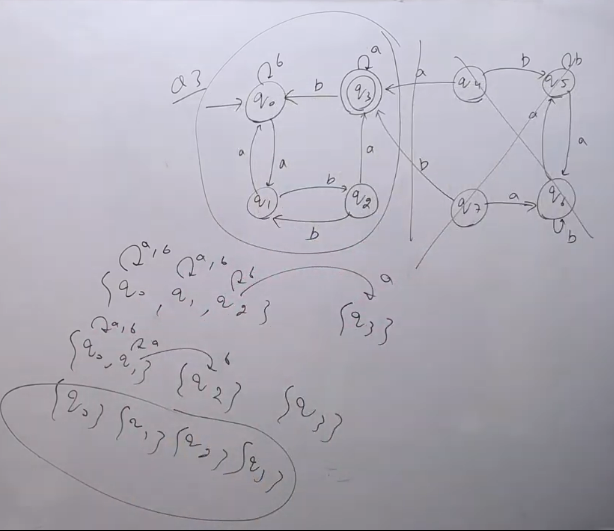 Q3
b
a
q0
b
q3
a
q4
b
q5
b
a
a
a
b
a
a
q1
b
q2
b
b
q7
a
q6
b
a, b
a, b
b
a
{q0, q1, q2}
{q3}
a, b
a
b
{q0, q1}
{q2}
{q3}
{q0} {q1} {q2} {q3}